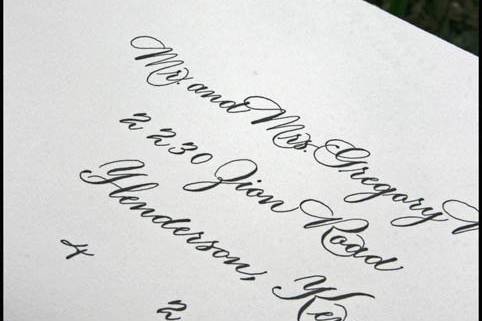 Mr. and Mrs. Gregory
2230 Zion Road
Henderson, Ke
4
2